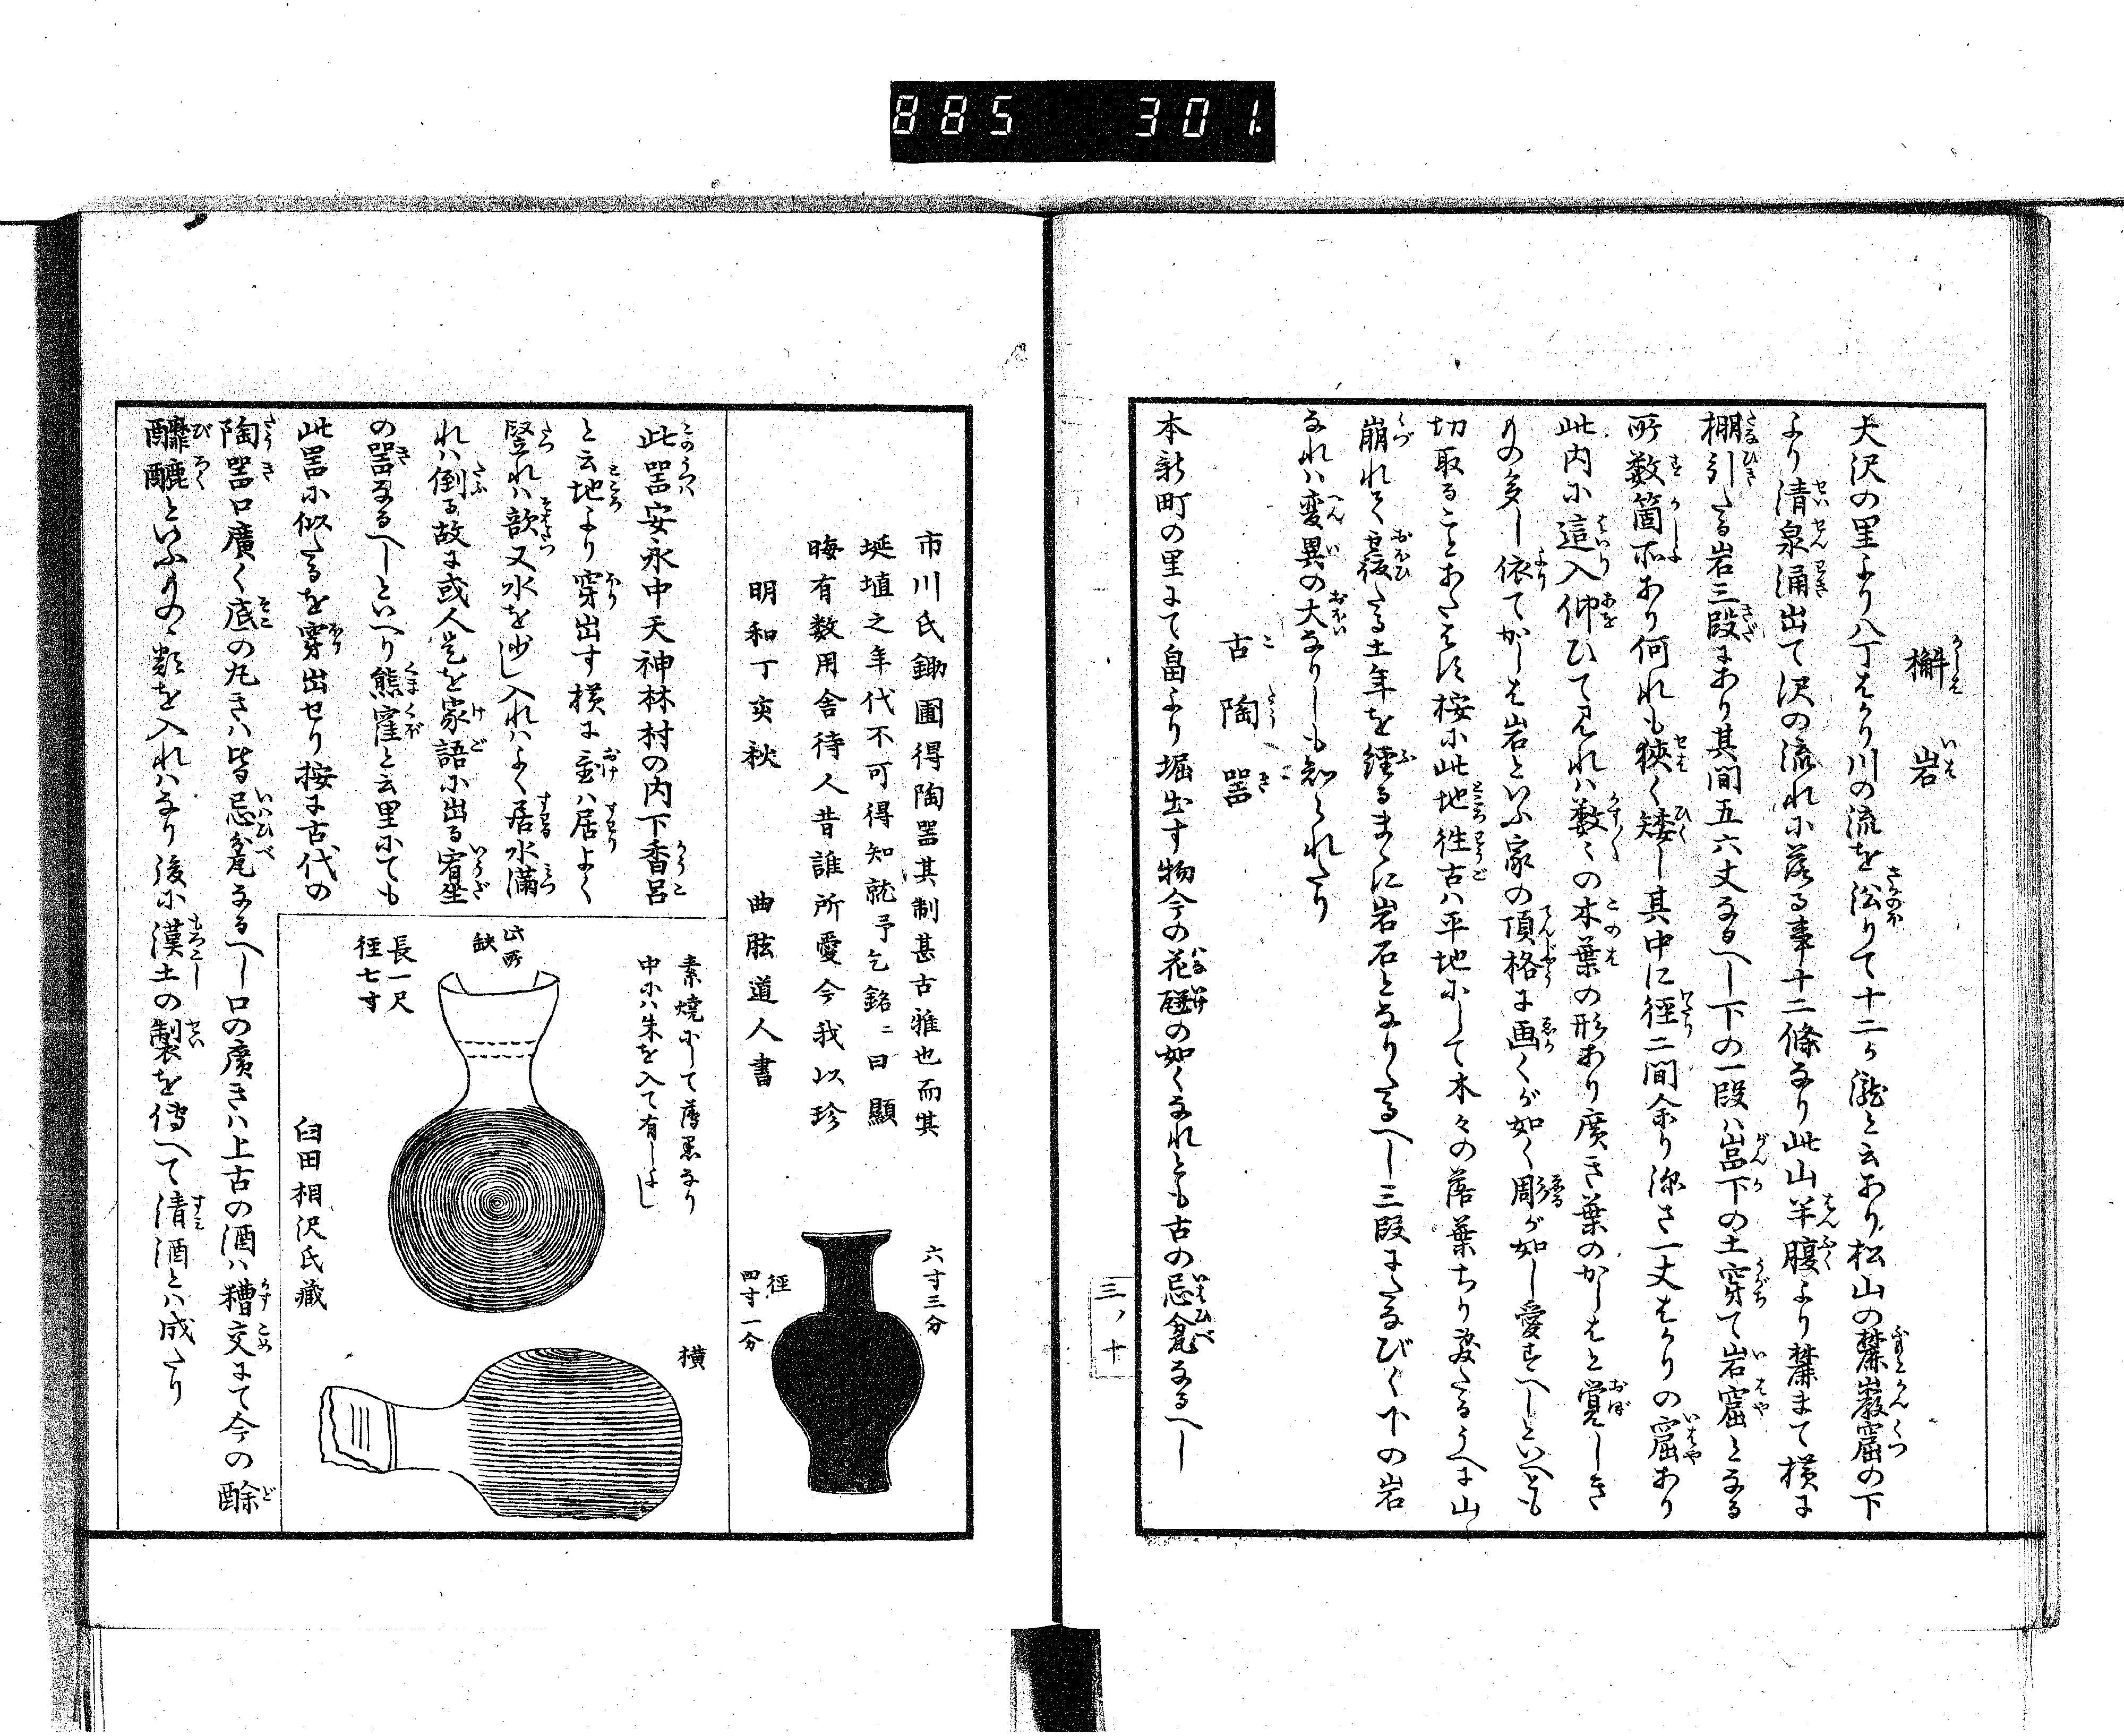 885 301.
檞岩
犬沢の里より八丁はかり川の流を泝りて十二ヶ瀧と云あり松山の麓巌窟の下
より清泉涌出て沢の流れに落る事十二條なり此山半腹より麓まて横に
棚引たる岩三段にあり其間五六丈なるへし下の一段ハ嵓下の土穿て岩窟となる
所数箇所あり何れも狭く矮し其中に径二間余り深さ一丈はかりの窟あり
此内に這入仰ひて見れハ数々の木葉の形あり廣き葉のかしはと覚しき
もの多し依てかしは岩といふ家の頂格に画くが如く彫が如し愛すへしといへとも
切取ることあたはす按に此地往古ハ平地にして木々の落葉ちり敷たるうへに山
崩れて覆たる土年を經るまゝに岩石となりたるへし三段にたなびく下の岩
なれハ変異の大なりしも知られたり
古陶器
本新町の里にて畠より堀出す物今の花罐の如くなれとも古の忌瓮なるへし
三ノ十
市川氏鋤圃得陶器其制甚古雅也而其
埏埴之年代不可得知就予乞銘ニ曰 顯
晦有数用舎待人昔誰所愛今我以珍
明和丁亥秋 曲肱道人書
六寸三分
径
四寸一分
此器安永中天神林村の内下香呂
と云地より穿出す横に置ハ居よく
竪れハ欹又水を少し入れハよく居水満
れハ倒る故に或人是を家語に出る宥坐
の器なるへしといへり熊窪と云里にても
此器に似たるを穿出せり按に古代の
陶器口廣く底の丸きハ皆忌瓮なるへし口の廣きハ上古の酒ハ糟交にて今の酴
醿醾といふものゝ類を入れハなり後に漢土の製を傳へて清酒とハ成たり
素焼にして薄黒なり
中にハ朱を入て有しよし
此所
缺
長一尺
径七寸
臼田相沢氏藏
横